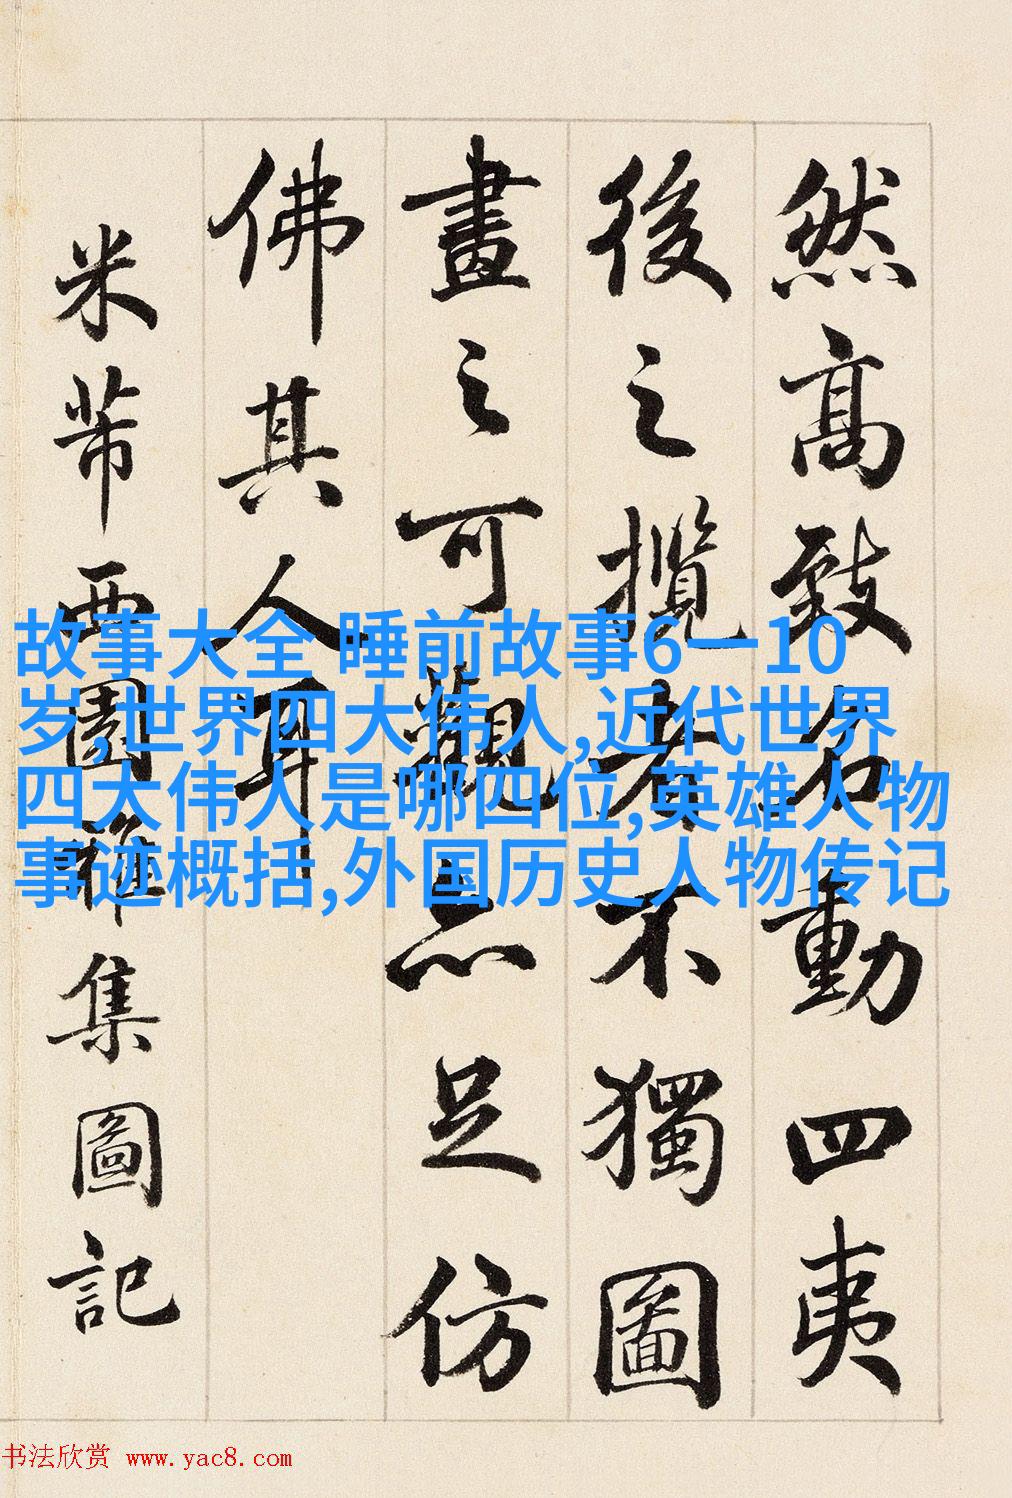 然高致名動四夷
後之攬者不獨圖
畫之可觀亦足仿
佛其人耳
米芾西園雅集圖記
故事大全 睡前故事6一10
岁,世界四大伟人,近代世界
四大伟人是哪四位,英雄人物
事迹概括,外国历史人物传记
书法欣赏 www.yac8.com